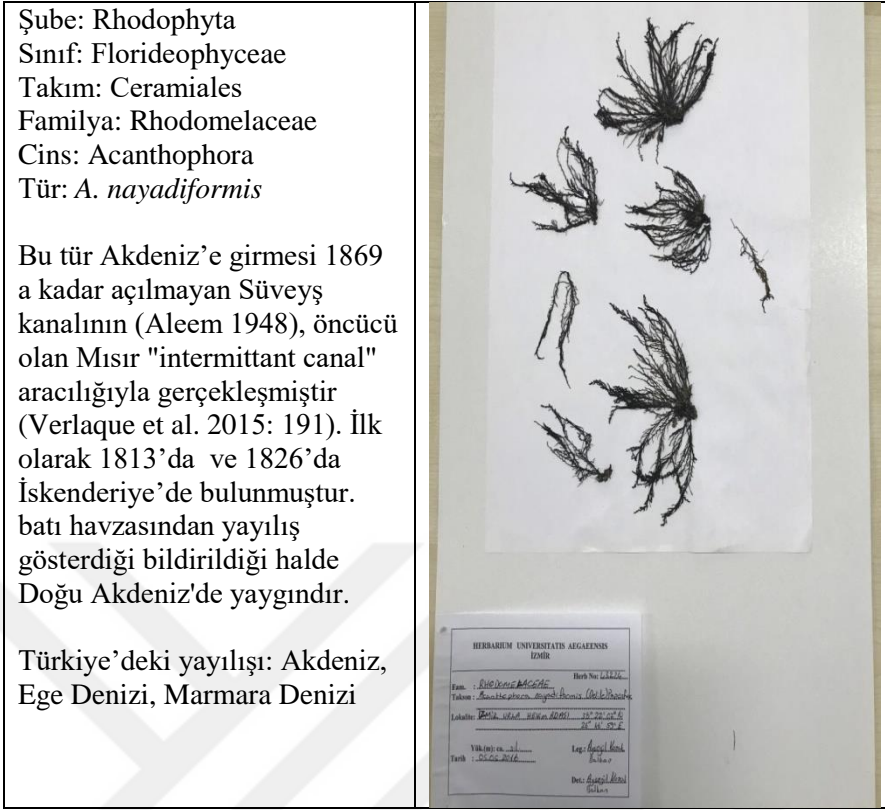 Şube: Rhodophyta
Sınıf: Florideophyceae
Takım: Ceramiales
Familya: Rhodomelaceae
Cins: Acanthophora
Tür: A. nayadiformis
Bu tür Akdeniz’e girmesi 1869
a kadar açılmayan Süveyş
kanalının (Aleem 1948), öncücü
olan Mısır "intermittant canal"
aracılığıyla gerçekleşmiştir
(Verlaque et al. 2015: 191). İlk
olarak 1813’da ve 1826’da
İskenderiye’de bulunmuştur.
batı havzasından yayılış
gösterdiği bildirildiği halde
Doğu Akdeniz'de yaygındır.
Türkiye’deki yayılışı: Akdeniz,
Ege Denizi, Marmara Denizi
HERBARIUM UNIVERSITATIS AEGAEENSIS
İZMİR
Herb No:
Fam. : RHODOMELACEAE
Takson: Acanthophora nayadiformis (Delile)
Lokalite: İZMİR URLA ADASI
Yük.(m): ca. Leg.: Ayşegül
Tarih : 05.05.2016
Det.: Ayşegül